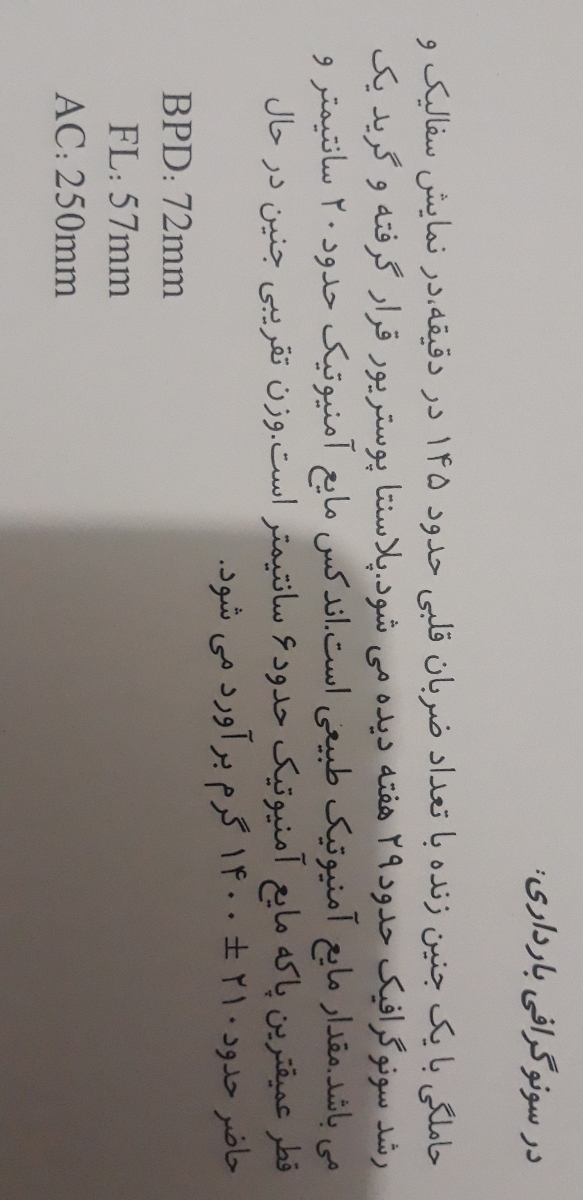 در سونوگرافی بارداری:
حاملگی با یک جنین زنده با تعداد ضربان قلبی حدود ۱۴۵ در دقیقه،در نمایش سفالیک و
رشد سونوگرافیک حدود۲۹ هفته دیده می شود.پلاسنتا پوستریور قرار گرفته و گرید یک
می باشد.مقدار مایع آمنیوتیک طبیعی است.اندکس مایع آمنیوتیک حدود۲۰ سانتیمتر و
قطر عمیقترین پاکه مایع آمنیوتیک حدود۶ سانتیمتر است.وزن تقریبی جنین در حال
حاضر حدود۲۱۰ ± ۱۴۰۰ گرم برآورد می شود.
BPD: 72mm
FL: 57mm
AC: 250mm